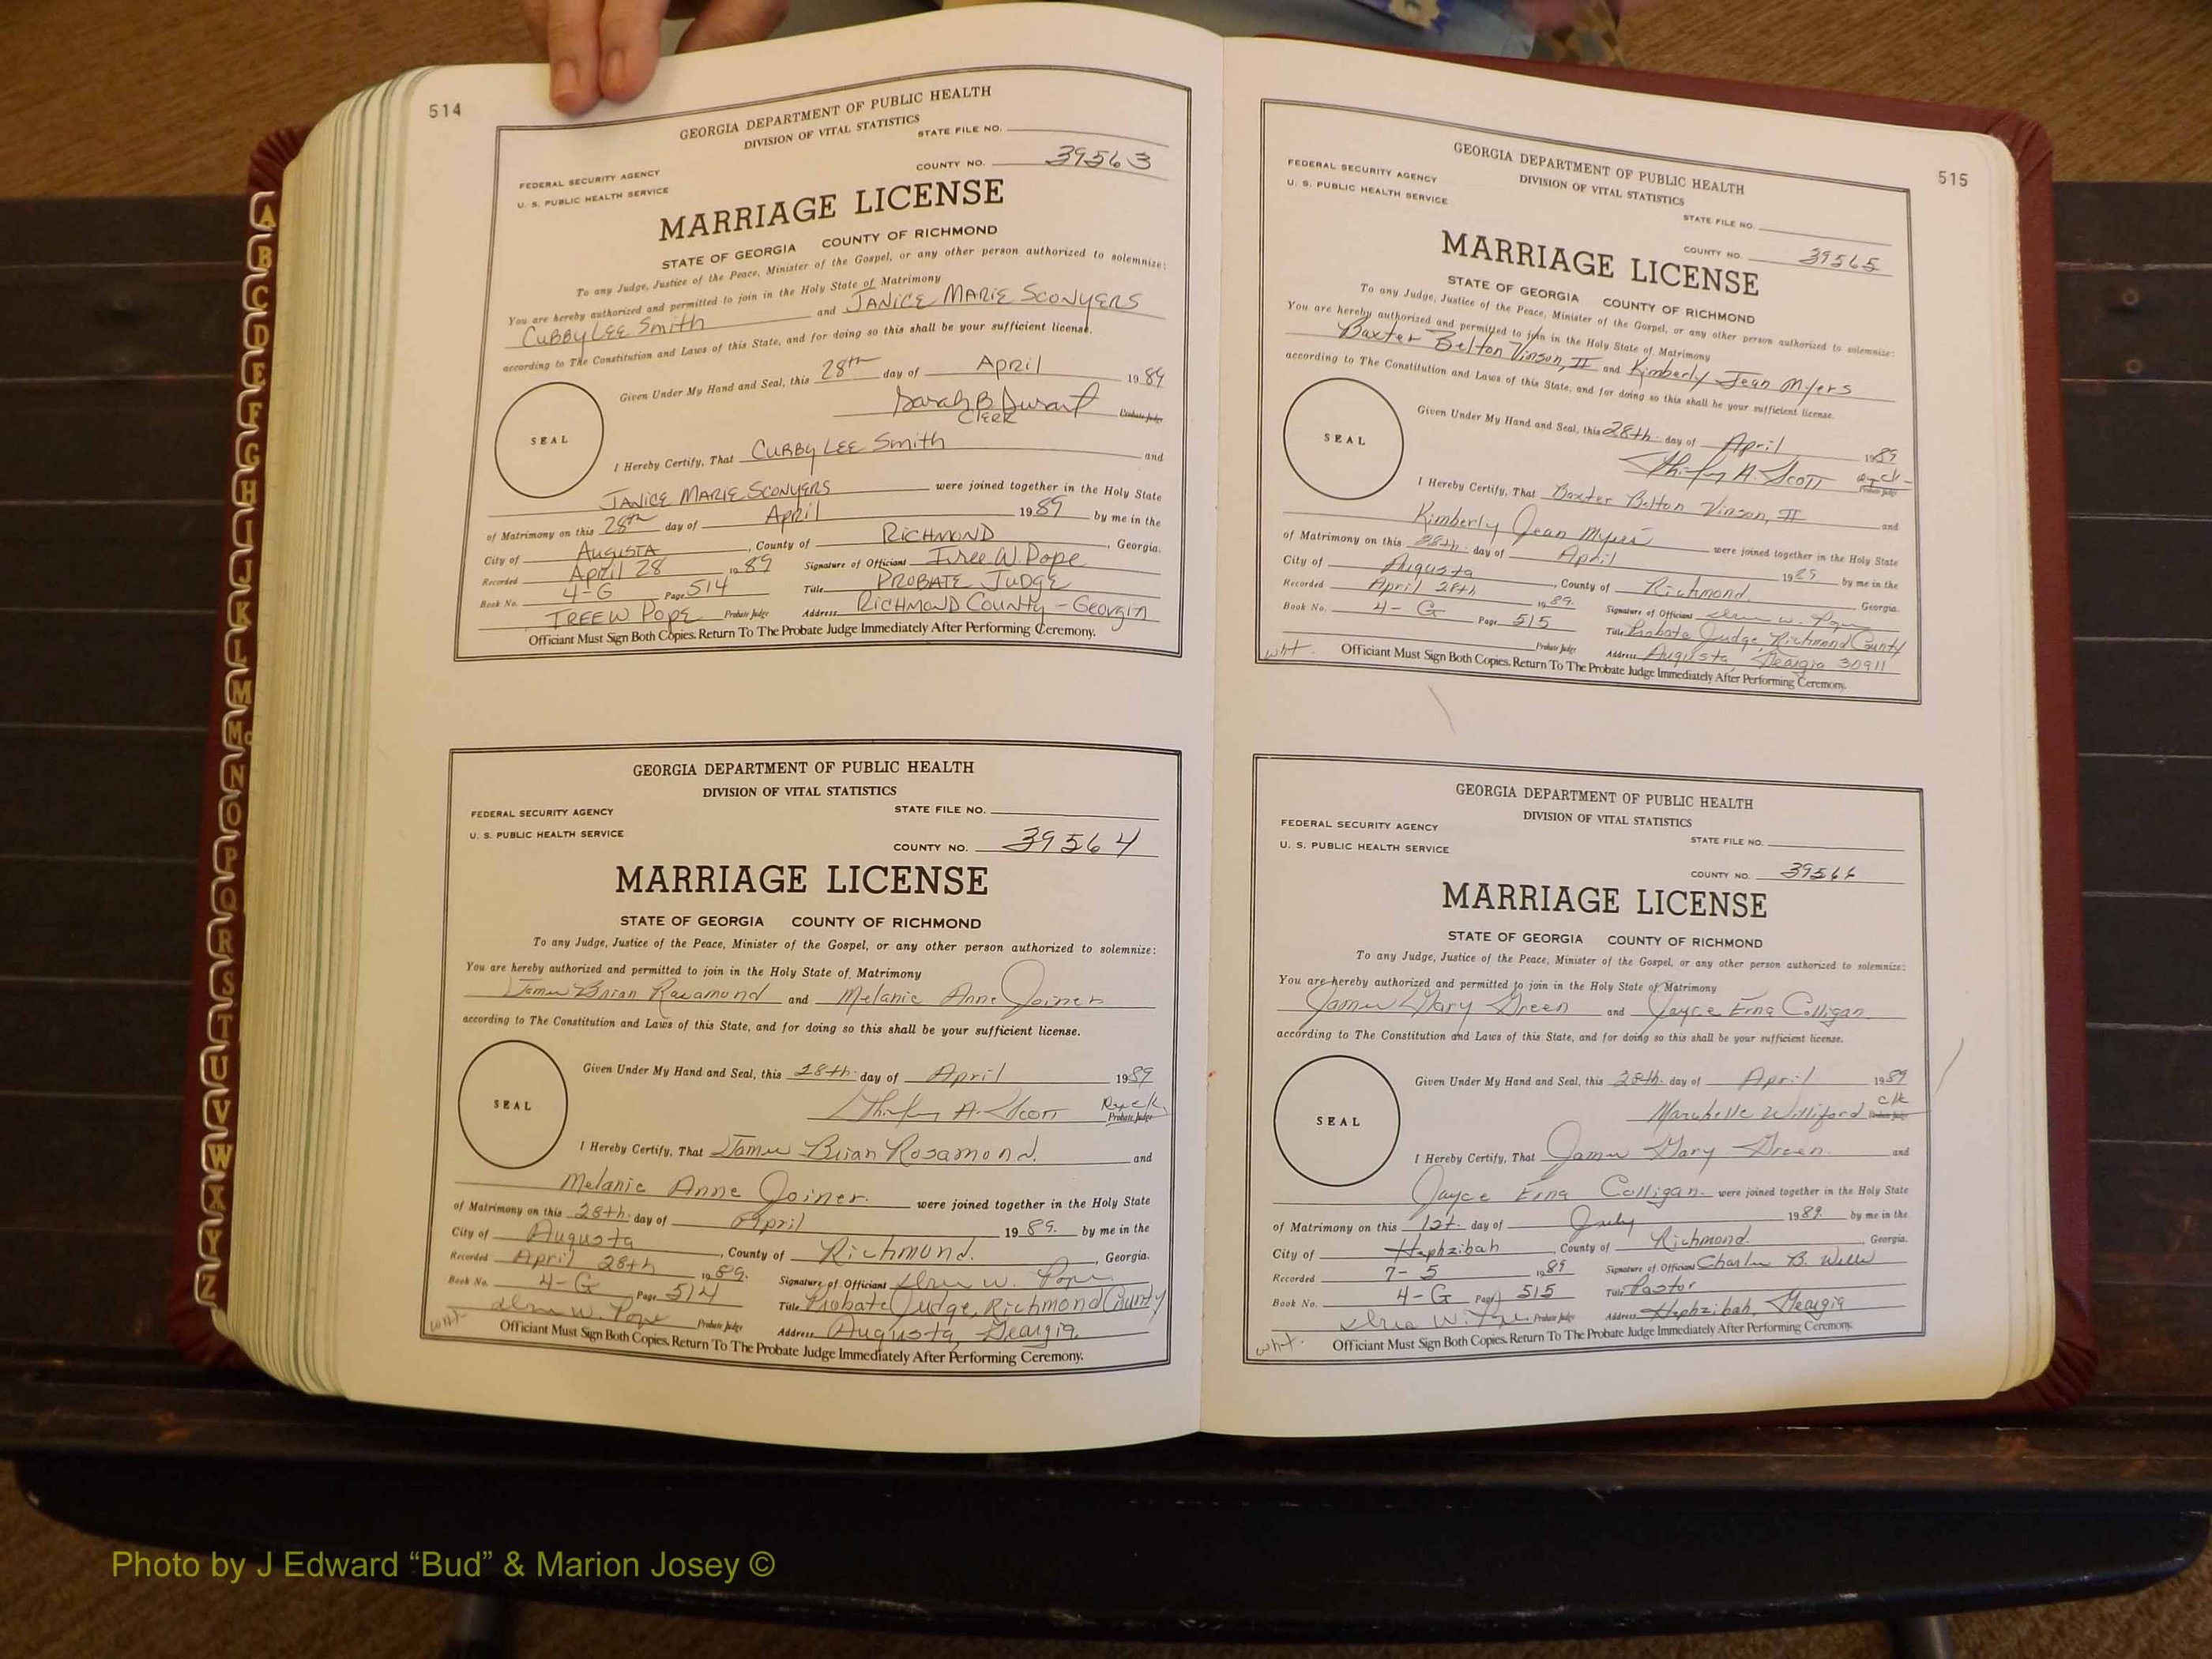 514
GEORGIA DEPARTMENT OF PUBLIC HEALTH
DIVISION OF VITAL STATISTICS
STATE FILE NO.
FEDERAL SECURITY AGENCY
COUNTY NO. 39563
U. S. PUBLIC HEALTH SERVICE
MARRIAGE LICENSE
STATE OF GEORGIA COUNTY OF RICHMOND
To any Judge, Justice of the Peace, Minister of the Gospel, or any other person authorized to solemnize:
You are hereby authorized and permitted to join in the Holy State of Matrimony
CUBBY LEE Smith and JANICE MARIE SCONYERS
according to The Constitution and Laws of this State, and for doing so this shall be your sufficient license.
Given Under My Hand and Seal, this 28th day of April 1989
Sarah B Durant Probate Judge
CLERK
SEAL
I Hereby Certify, That CUBBY LEE Smith and
JANICE MARIE SCONYERS were joined together in the Holy State
of Matrimony on this 28th day of April 1989 by me in the
City of AUGUSTA, County of RICHMOND, Georgia.
Recorded April 28 1989 Signature of Officiant Isree W. Pope
Book No. 4-G Page 514 Title PROBATE JUDGE
TREE W POPE Probate Judge Address RICHMOND COUNTY - GEORGIA
Officiant Must Sign Both Copies. Return To The Probate Judge Immediately After Performing Ceremony.
GEORGIA DEPARTMENT OF PUBLIC HEALTH
DIVISION OF VITAL STATISTICS
FEDERAL SECURITY AGENCY
STATE FILE NO.
U. S. PUBLIC HEALTH SERVICE
COUNTY NO. 39564
MARRIAGE LICENSE
STATE OF GEORGIA COUNTY OF RICHMOND
To any Judge, Justice of the Peace, Minister of the Gospel, or any other person authorized to solemnize:
You are hereby authorized and permitted to join in the Holy State of Matrimony
James Brian Rosamond and Melanie Anne Joiner
according to The Constitution and Laws of this State, and for doing so this shall be your sufficient license.
Given Under My Hand and Seal, this 28th. day of April 1989
A. Scott
Probate Judge
SEAL
I Hereby Certify, That James Brian Rosamond. and
Melanie Anne Joiner. were joined together in the Holy State
of Matrimony on this 28th. day of April 1989. by me in the
City of Augusta, County of Richmond., Georgia.
Recorded April 28th 1989. Signature of Officiant W. Pope
Book No. 4-G Page 514 Title Probate Judge, Richmond County
W. Pope Probate Judge Address Augusta, Georgia
wht.
Officiant Must Sign Both Copies. Return To The Probate Judge Immediately After Performing Ceremony.
515
GEORGIA DEPARTMENT OF PUBLIC HEALTH
DIVISION OF VITAL STATISTICS
FEDERAL SECURITY AGENCY
STATE FILE NO.
U. S. PUBLIC HEALTH SERVICE
COUNTY NO. 39565
MARRIAGE LICENSE
STATE OF GEORGIA COUNTY OF RICHMOND
To any Judge, Justice of the Peace, Minister of the Gospel, or any other person authorized to solemnize:
You are hereby authorized and permitted to join in the Holy State of Matrimony
Baxter Belton Vinson, II and Kimberly Jean Myers
according to The Constitution and Laws of this State, and for doing so this shall be your sufficient license.
Given Under My Hand and Seal, this 28th. day of April 1989
A. Scott
Probate Judge
SEAL
I Hereby Certify, That Baxter Belton Vinson, II and
Kimberly Jean Myers were joined together in the Holy State
of Matrimony on this 28th. day of April 1989 by me in the
City of Augusta, County of Richmond. Georgia.
Recorded April 28th 1989. Signature of Officiant W. Pope
Book No. 4-G Page 515 Title Probate Judge, Richmond County
Probate Judge Address Augusta, Georgia 30911
wht.
Officiant Must Sign Both Copies. Return To The Probate Judge Immediately After Performing Ceremony.
GEORGIA DEPARTMENT OF PUBLIC HEALTH
DIVISION OF VITAL STATISTICS
FEDERAL SECURITY AGENCY
STATE FILE NO.
U. S. PUBLIC HEALTH SERVICE
COUNTY NO. 39566
MARRIAGE LICENSE
STATE OF GEORGIA COUNTY OF RICHMOND
To any Judge, Justice of the Peace, Minister of the Gospel, or any other person authorized to solemnize:
You are hereby authorized and permitted to join in the Holy State of Matrimony
James Gary Green and Jayce Erna Colligan
according to The Constitution and Laws of this State, and for doing so this shall be your sufficient license.
Given Under My Hand and Seal, this 28th. day of April 1989
Marybelle Williford clk Probate Judge
SEAL
I Hereby Certify, That James Gary Green. and
Jayce Erna Colligan. were joined together in the Holy State
of Matrimony on this 1st. day of July 1989. by me in the
City of Hephzibah, County of Richmond. Georgia.
Recorded 7-5 1989 Signature of Officiant Charles B. Wells
Book No. 4-G Page 515 Title Pastor
W. Pope Probate Judge Address Hephzibah, Georgia
wht.
Officiant Must Sign Both Copies. Return To The Probate Judge Immediately After Performing Ceremony.
A
B
C
D
E
F
G
H
I
J
K
L
M
Mc
N
O
P
Q
R
S
T
U
V
W
X
Y
Z
Photo by J Edward “Bud” & Marion Josey ©